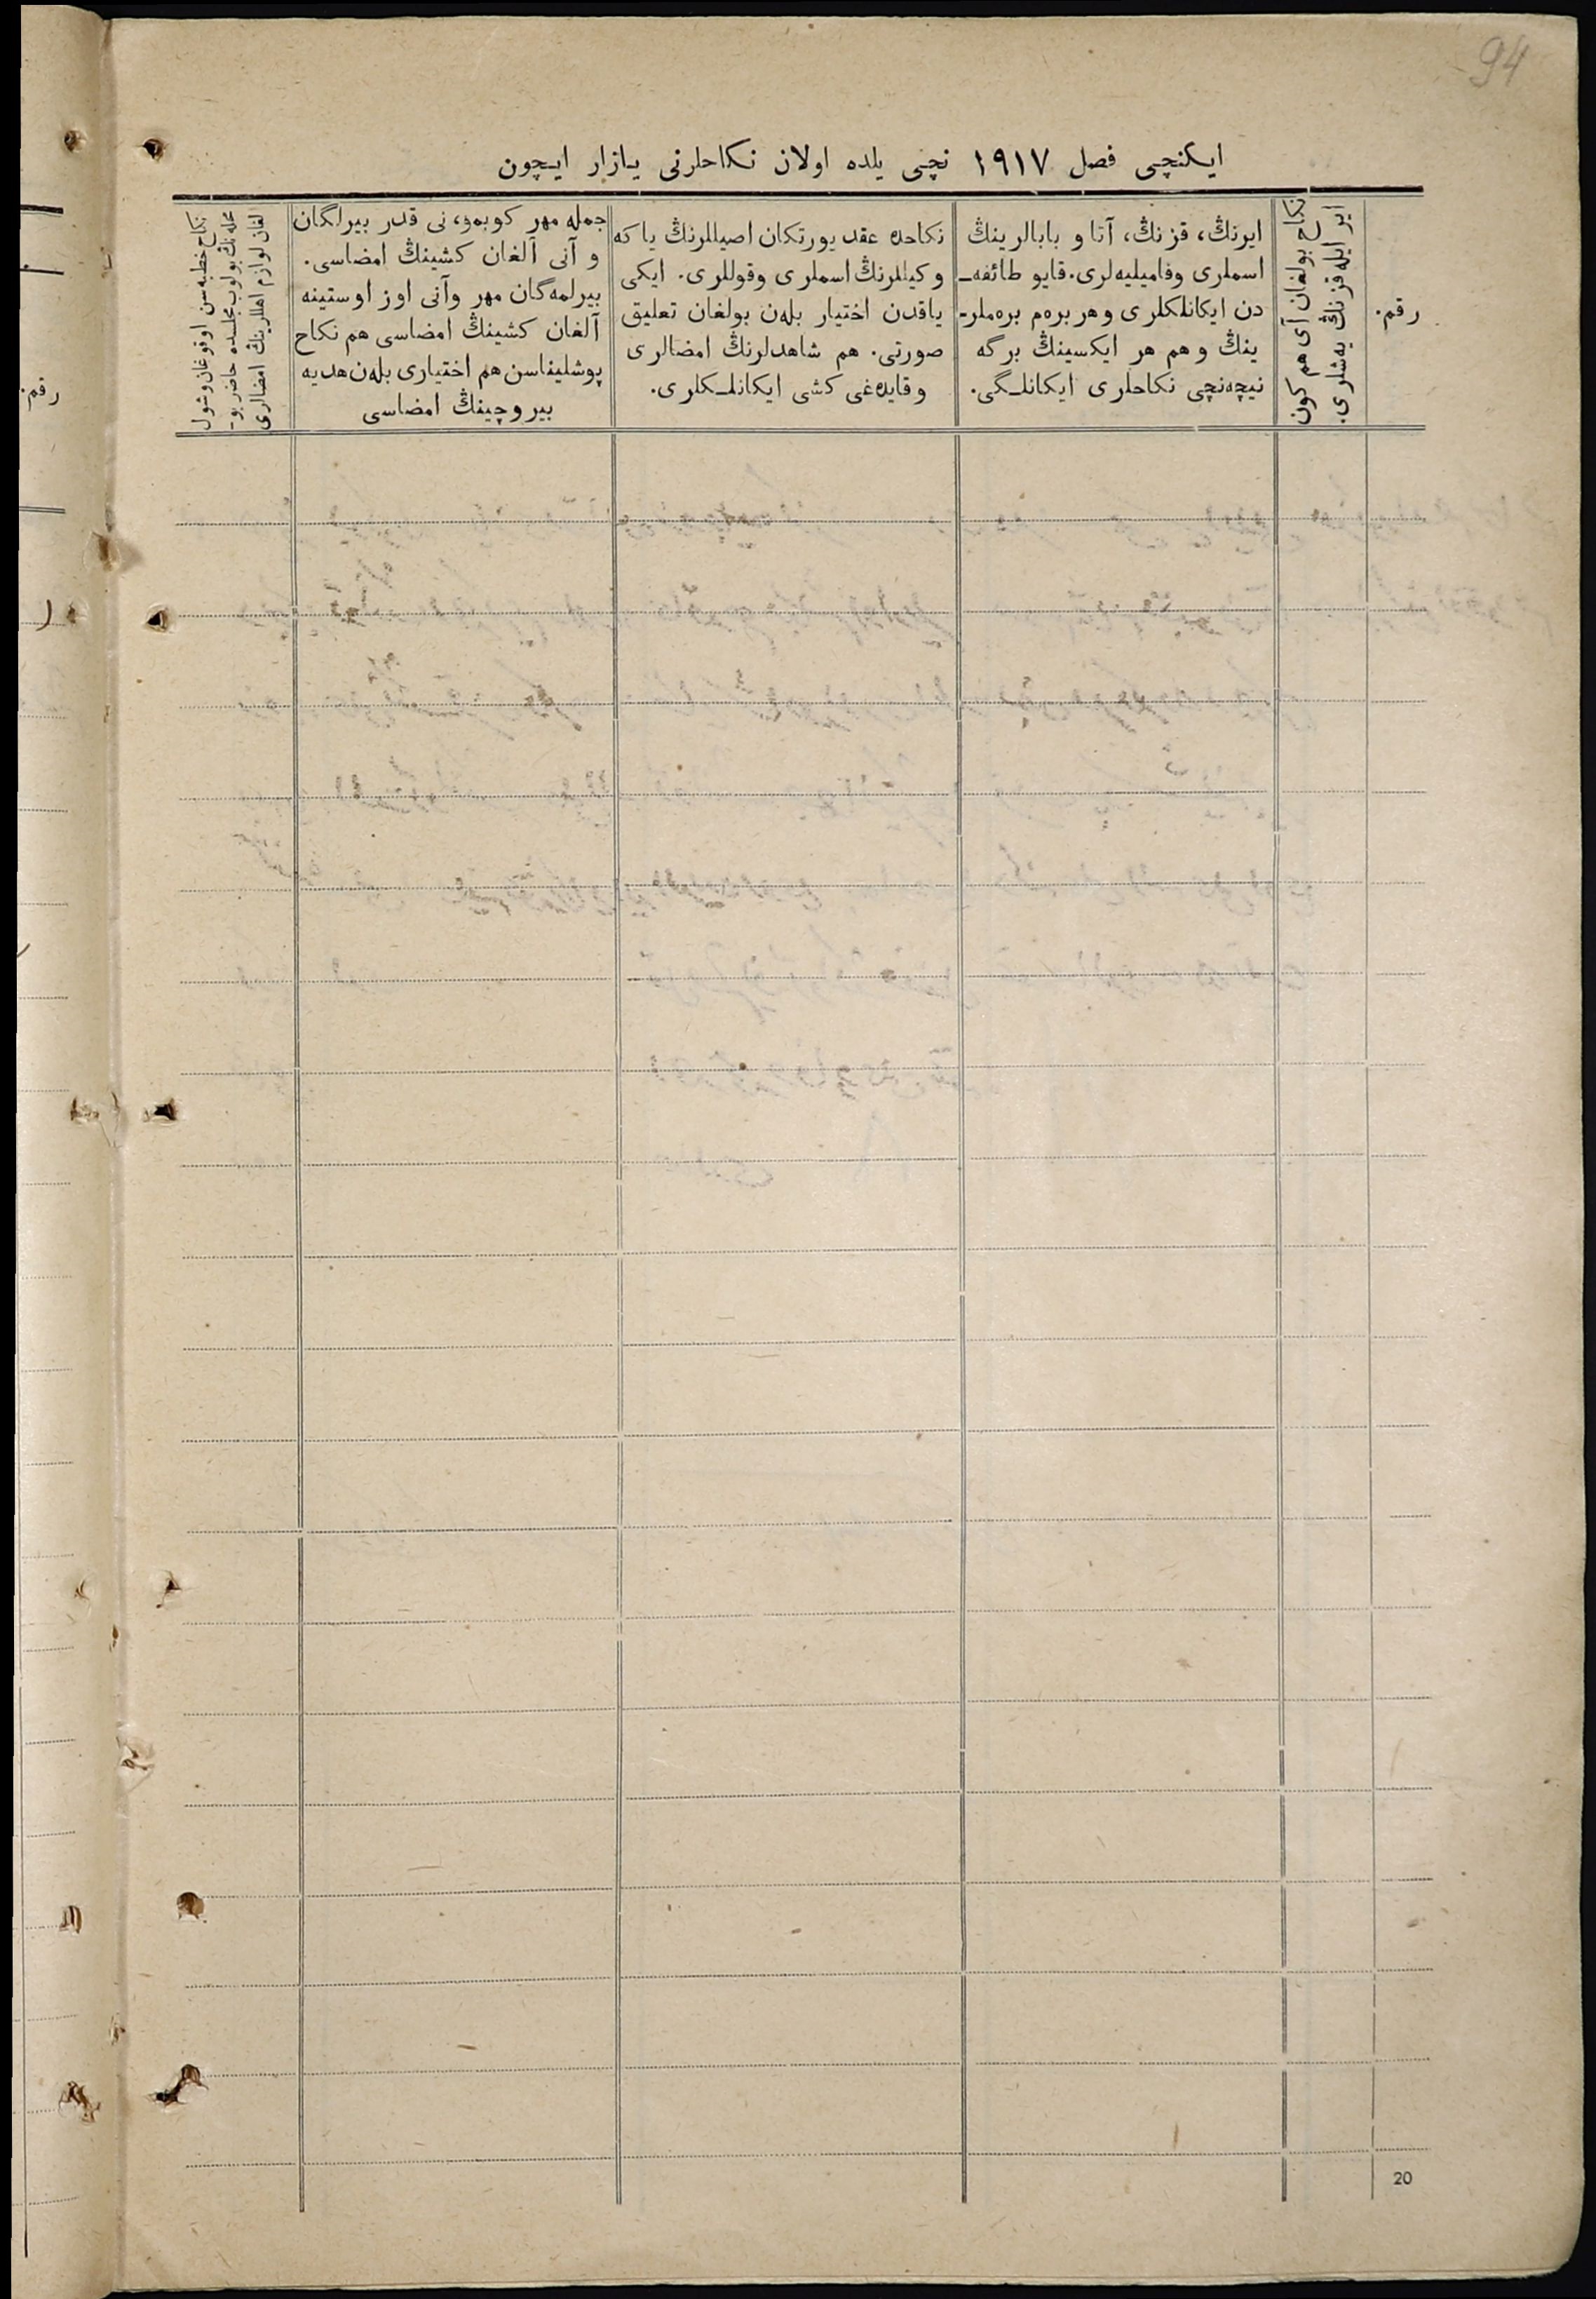 94
ایكنچی فصل ١٩١٧ نچی یلده اولان نكاحلرنی یازار ایچون
رقم.
نكاح بولغان آی هم كون
ایر ایله قزنڭ یه‌شلری.
ایرنڭ، قزنڭ، آتا و بابالرینڭ
اسملری وفامیلیه‌لری. قایو طائفه‌ـ
دن ایكانلكلری وهر بره‌م بره‌ملرـ
ینڭ وهم هر ایكسینڭ برگه
نیچه‌نچی نكاحلری ایكانلـگی.
نكاحده عقد یورتكان اصیللرنڭ یا كه
وكیللرنڭ اسملری وقوللری. ایكی
یاقدن اختیار بله‌ن بولغان تعلیق
صورتی. هم شاهدلرنڭ امضالری
وقایده‌غی كشی ایكانلـكلری.
جمله مهر كوبمو، نی قدر بیرلگان
و آنی آلغان كشینڭ امضاسی.
بیرلمه‌گان مهر وآنی اوز اوستینه
آلغان كشینڭ امضاسی هم نكاح
پوشلیناسن هم اختیاری بله‌ن هدیه
بیروچینڭ امضاسی
نكاح خطبه‌سن اوقوغان وشول
محله‌نڭ بولوب مجلسده حاضر بوـ
لغان لوازم اهللرینڭ امضالری
رقم.
20